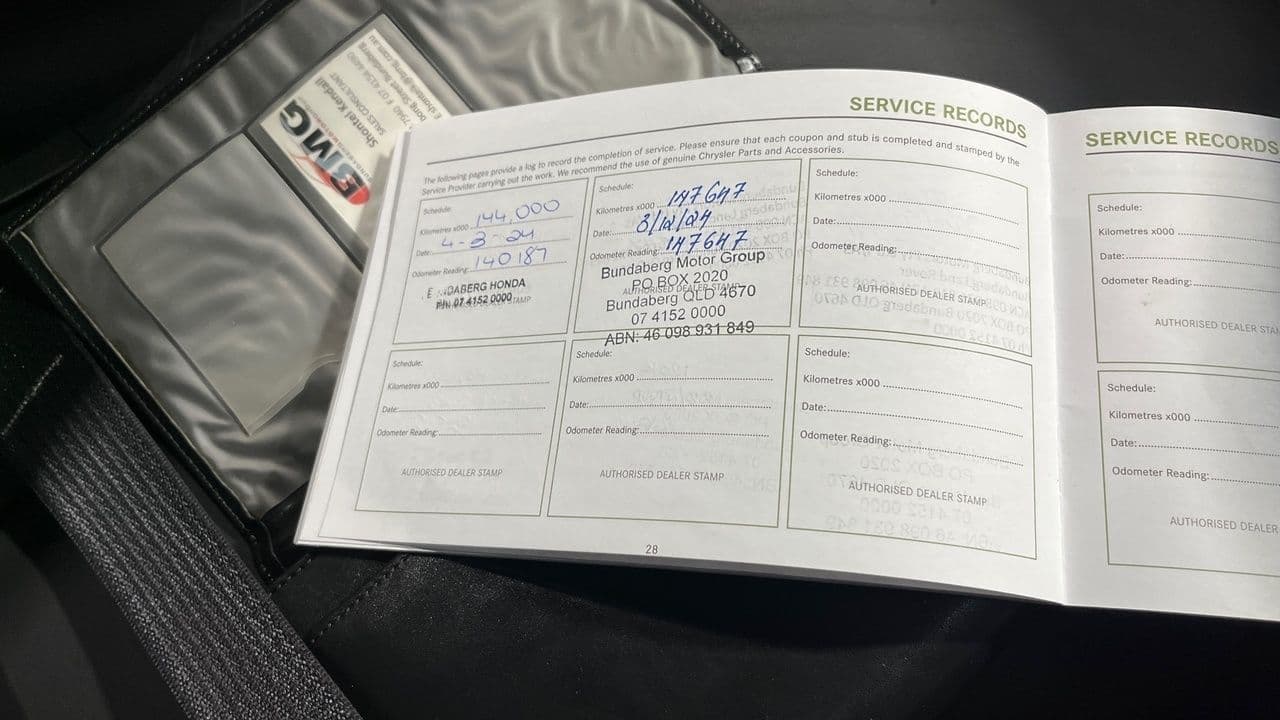 SERVICE RECORDS
The following pages provide a log to record the completion of service. Please ensure that each coupon and stub is completed and stamped by the
Service Provider carrying out the work. We recommend the use of genuine Chrysler Parts and Accessories.
Schedule:
Kilometres x000 144,000
Date: 4-3-24
Odometer Reading: 140187
DABERG HONDA
PH: 07 4152 0000
Schedule:
Kilometres x000 147647
Date: 3/12/24
Odometer Reading: 147647
Bundaberg Motor Group
PO BOX 2020
AUTHORISED DEALER STAMP
Bundaberg QLD 4670
07 4152 0000
ABN: 46 098 931 849
Schedule:
Kilometres x000
Date:
Odometer Reading:
AUTHORISED DEALER STAMP
Schedule:
Kilometres x000
Date:
Odometer Reading:
AUTHORISED DEALER STAMP
Schedule:
Kilometres x000
Date:
Odometer Reading:
AUTHORISED DEALER STAMP
Schedule:
Kilometres x000
Date:
Odometer Reading:
AUTHORISED DEALER STAMP
28
SERVICE RECORDS
Schedule:
Kilometres x000
Date:
Odometer Reading:
AUTHORISED DEALER STA
Schedule:
Kilometres x000
Date:
Odometer Reading:
AUTHORISED DEALER
BMG
Shantel Kendall
SALES CONSULTANT